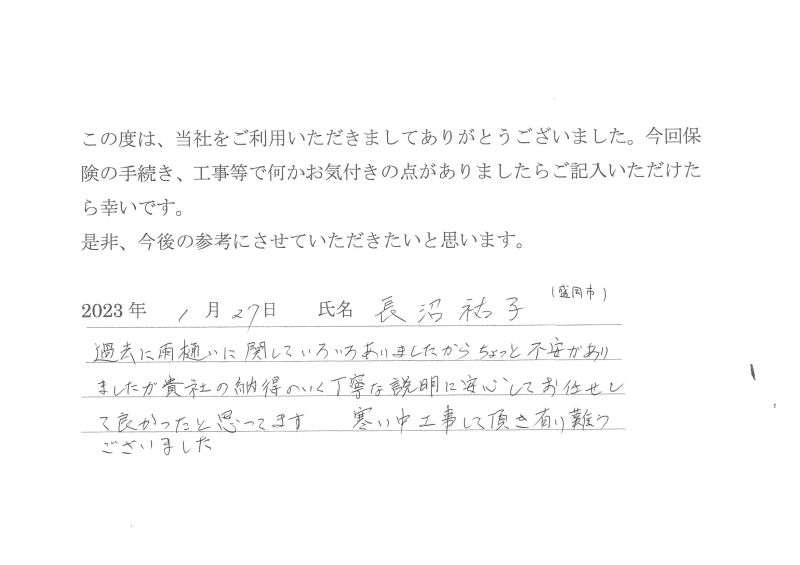 この度は、当社をご利用いただきましてありがとうございました。今回保
険の手続き、工事等で何かお気付きの点がありましたらご記入いただけた
ら幸いです。
是非、今後の参考にさせていただきたいと思います。
2023年 1月27日 氏名 長沼祐子 (盛岡市)
過去に雨樋いに関していろいろありましたからちょっと不安があり
ましたが貴社の納得のいく丁寧な説明に安心してお任せし
て良かったと思ってます 寒い中工事して頂き有り難う
ございました